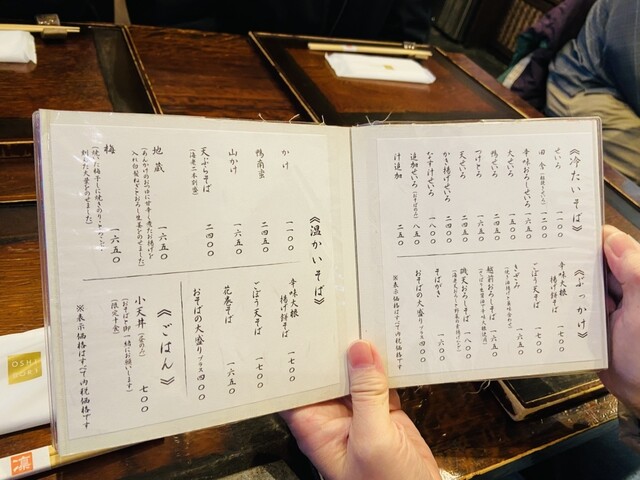 《冷たいそば》
せいろ 一一〇〇
田舎
辛味おろしせいろ 一六五〇
大せいろ 一五〇〇
鴨せいろ 二四五〇
つけとろ 一六五〇
天せいろ 二四〇〇
かき揚げせいろ 二四〇〇
なす汁せいろ 一八〇〇
追加せいろ 八〇〇
汁追加 二五〇
《ぶっかけ》
辛味大根
揚げ餅そば 一七〇〇
ごぼう天そば 一七〇〇
きざみ 一六五〇
越前おろしそば 一六五〇
磯天おろしそば 一八〇〇
そばがき 一六〇〇
おそばの大盛り プラス四〇〇
※表示価格はすべて内税価格です
《温かいそば》
かけ 一一〇〇
鴨南蛮 二四五〇
山かけ 一六五〇
天ぷらそば 二四〇〇
(海老二本別盛)
地蔵 一六五〇
(あんかけのおつゆに甘辛く煮たお揚げと
入れ白髪ねぎとおろし生姜をのせました)
梅 一六五〇
(焼いた梅干しに焼きのり、とろろと
削した大葉をのせました)
辛味大根
揚げ餅そば 一七〇〇
ごぼう天そば 一七〇〇
花巻そば 一六五〇
おそばの大盛り プラス四〇〇
《ごはん》
小天丼 七〇〇
(おそばと御一緒にお願いします)
(限定十食)
※表示価格はすべて内税価格です